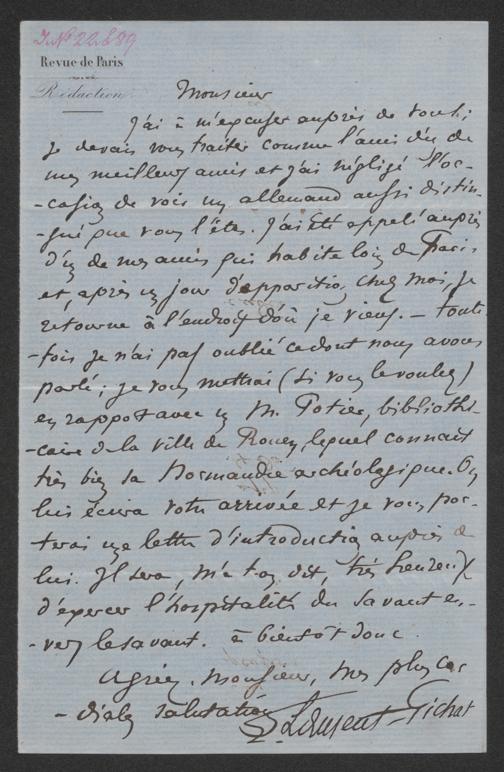 I.N. 22.689
Revue de Paris
Rédaction
Monsieur
J'ai à m'excuser auprès de vous;
je devais vous traiter comme l'ami d'un de
mes meilleurs amis et j'ai négligé l'oc-
-casion de voir un allemand aussi distin-
-gué que vous l'êtes. J'ai été appelé auprès
d'un de mes amis qui habite loin de Paris
et, après un jour d'apparition chez moi, je
retourne à l'endroit d'où je viens. — toute
-fois je n'ai pas oublié ce dont nous avons
parlé; je vous mettrai (si vous le voulez)
en rapport avec un M. Potier, bibliothé-
-caire de la ville de Rouen, lequel connait
très bien sa Normandie archéologique. On
lui écrira votre arrivée et je vous por-
-terai une lettre d'introduction auprès de
lui. Il sera, m'a-t-on dit, très heureux
d'exercer l'hospitalité du savant en-
-vers le savant. à bientôt donc.
Agréez, Monsieur, mes plus cor
-diales salutations
L. Laurent-Pichat